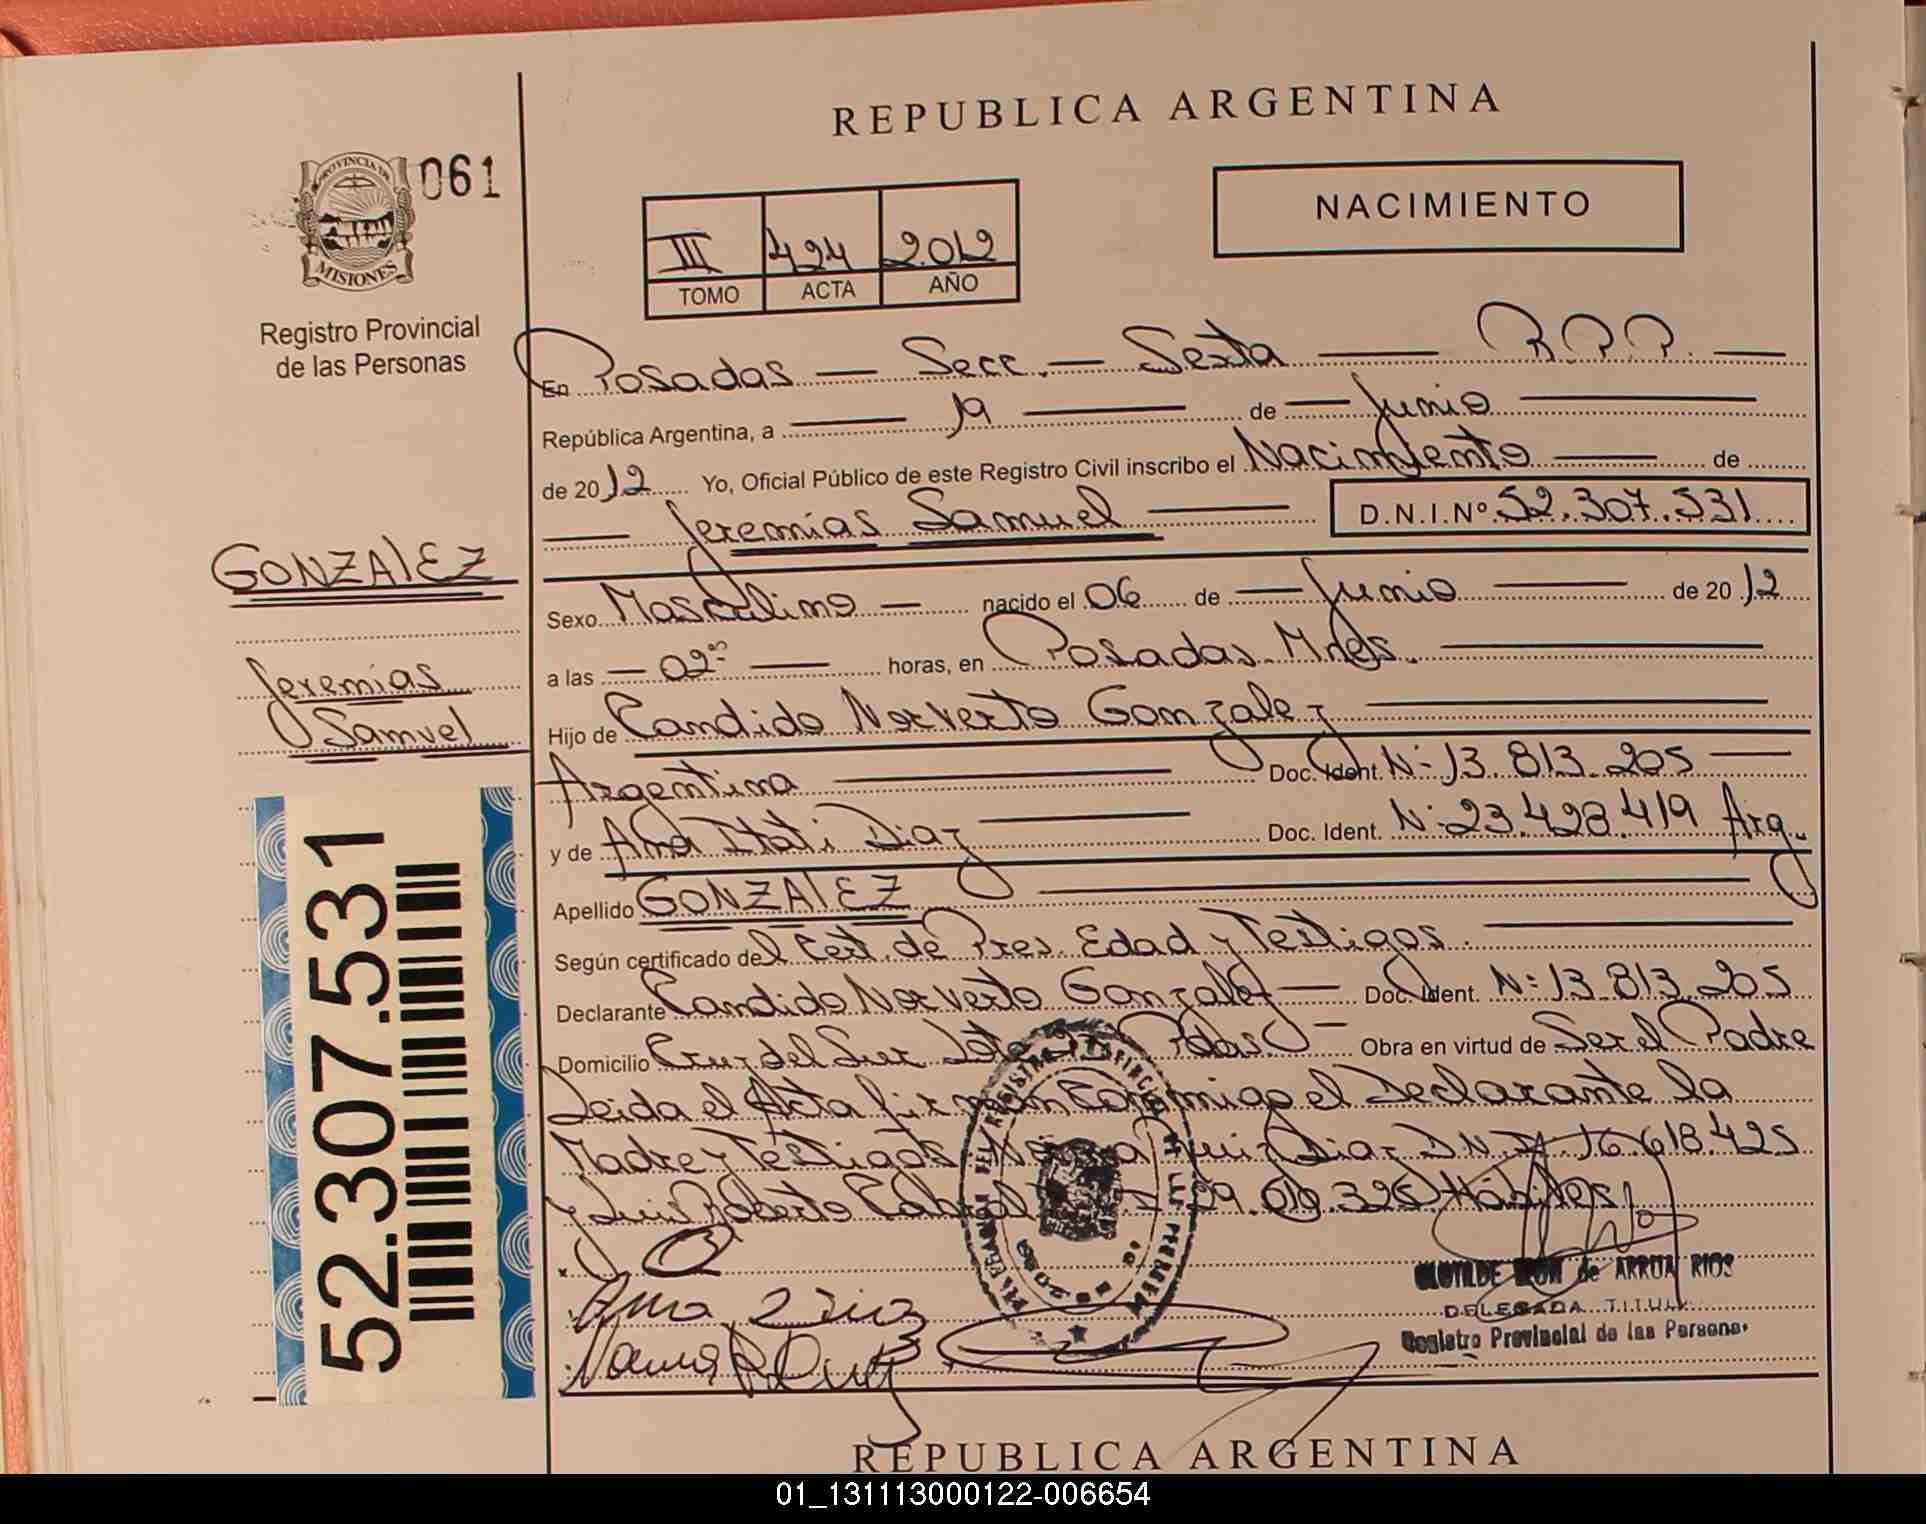 REPUBLICA ARGENTINA
PROVINCIA DE
MISIONES
061
Registro Provincial
de las Personas
NACIMIENTO
III 424 2.012
TOMO ACTA AÑO
En Posadas — Secc. — Sexta — R.P.P. —
República Argentina, a — 19 — de — Junio —
de 2012 Yo, Oficial Público de este Registro Civil inscribo el Nacimiento — de
— Jeremías Samuel — D.N.I.Nº 52.307.531
GONZALEZ
Jeremías
Samuel
Sexo Masculino — nacido el 06 de — Junio — de 2012
a las — 02 — horas, en Posadas. Mnes. —
Hijo de Candido Norverto Gonzalez —
Argentina — Doc. Ident. N: 13.813.205 —
y de Ana Itati Diaz — Doc. Ident. N: 23.428.419 Arg.
Apellido GONZALEZ —
Según certificado del Cert. de Pres. Edad y Testigos. —
Declarante Candido Norverto Gonzalez — Doc. Ident. N: 13.813.205
Domicilio Cruz del Sur Pdas. — Obra en virtud de Ser el Padre
Leida el Acta firman Conmigo el Declarante la
Madre y Testigos Ruiz Diaz D.N.I. 16.618.425
y Luis Roberto Cabral Hábiles
Ana Diaz
CLOTILDE de ARRUA RIOS
DELEGADA TITULAR
Registro Provincial de las Personas
52.307.531
REPUBLICA ARGENTINA
01_131113000122-006654